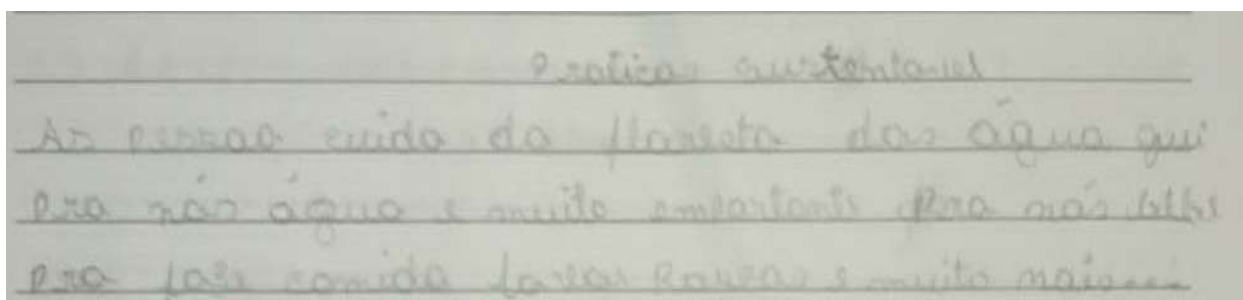 Praticas sustentavel
As pessoas cuida da floresta das água qui
pra nós água e muito emportante pra nós bebe
pra fase comida lavar roupas e muito mais